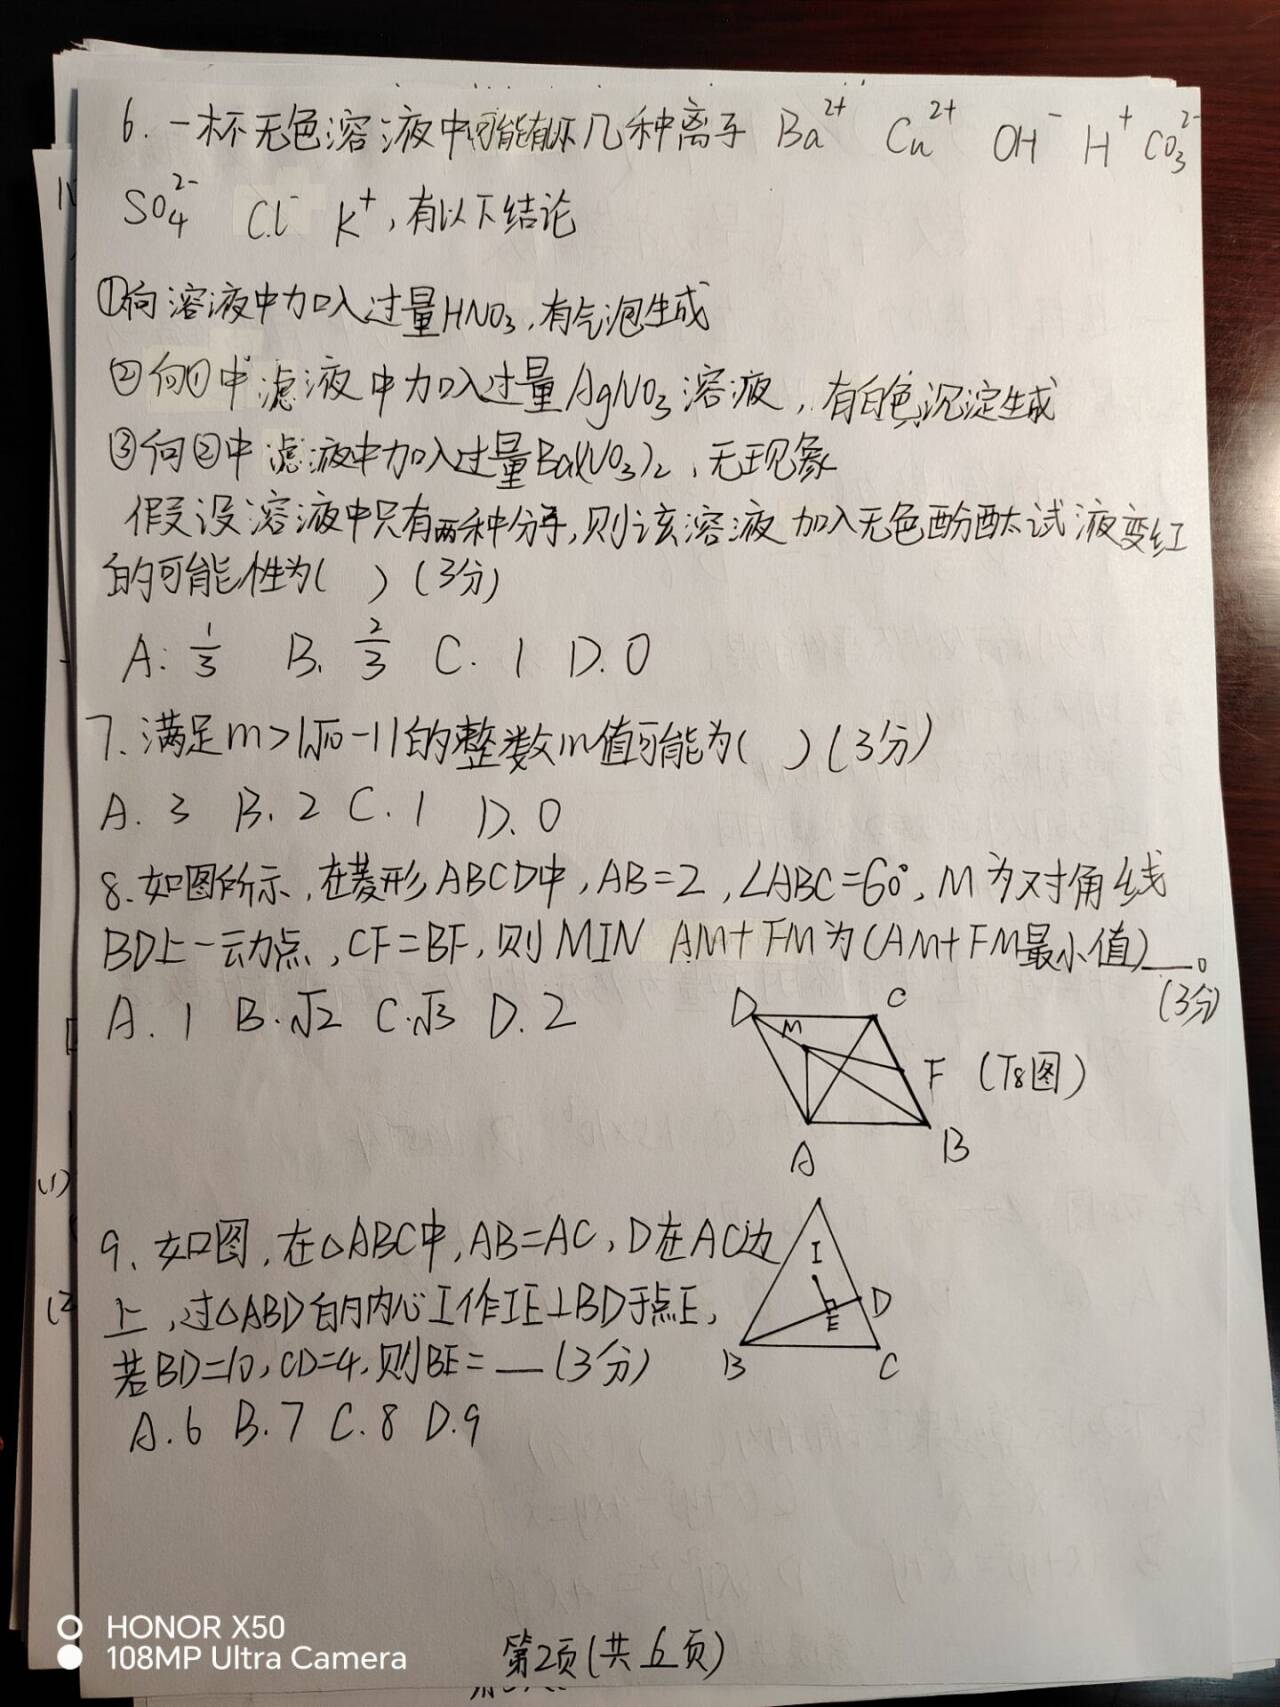 6. 一杯无色溶液中可能有以下几种离子 Ba²⁺ Cu²⁺ OH⁻ H⁺ CO₃²⁻
SO₄²⁻ Cl⁻ K⁺, 有以下结论
①向溶液中加入过量HNO₃, 有气泡生成
②向①中滤液中加入过量AgNO₃溶液, 有白色沉淀生成
③向②中滤液中加入过量Ba(NO₃)₂, 无现象
假设溶液中只有两种分子, 则该溶液加入无色酚酞试液变红
的可能性为( ) (3分)
A. 1/3 B. 2/3 C. 1 D. 0
7. 满足m>|√10-1|的整数m值可能为( ) (3分)
A. 3 B. 2 C. 1 D. 0
8. 如图所示, 在菱形ABCD中, AB=2, ∠ABC=60°, M为对角线
BD上一动点, CF=BF, 则MIN AM+FM为(AM+FM最小值)__。
(3分)
A. 1 B. √2 C. √3 D. 2
D C
M
F (T8图)
A B
9. 如图, 在△ABC中, AB=AC, D在AC边
上, 过△ABD的内心I作IE⊥BD于点E,
若BD=10, CD=4, 则BE=__(3分)
A. 6 B. 7 C. 8 D. 9
I
D
E
B C
HONOR X50
108MP Ultra Camera
第2页(共6页)